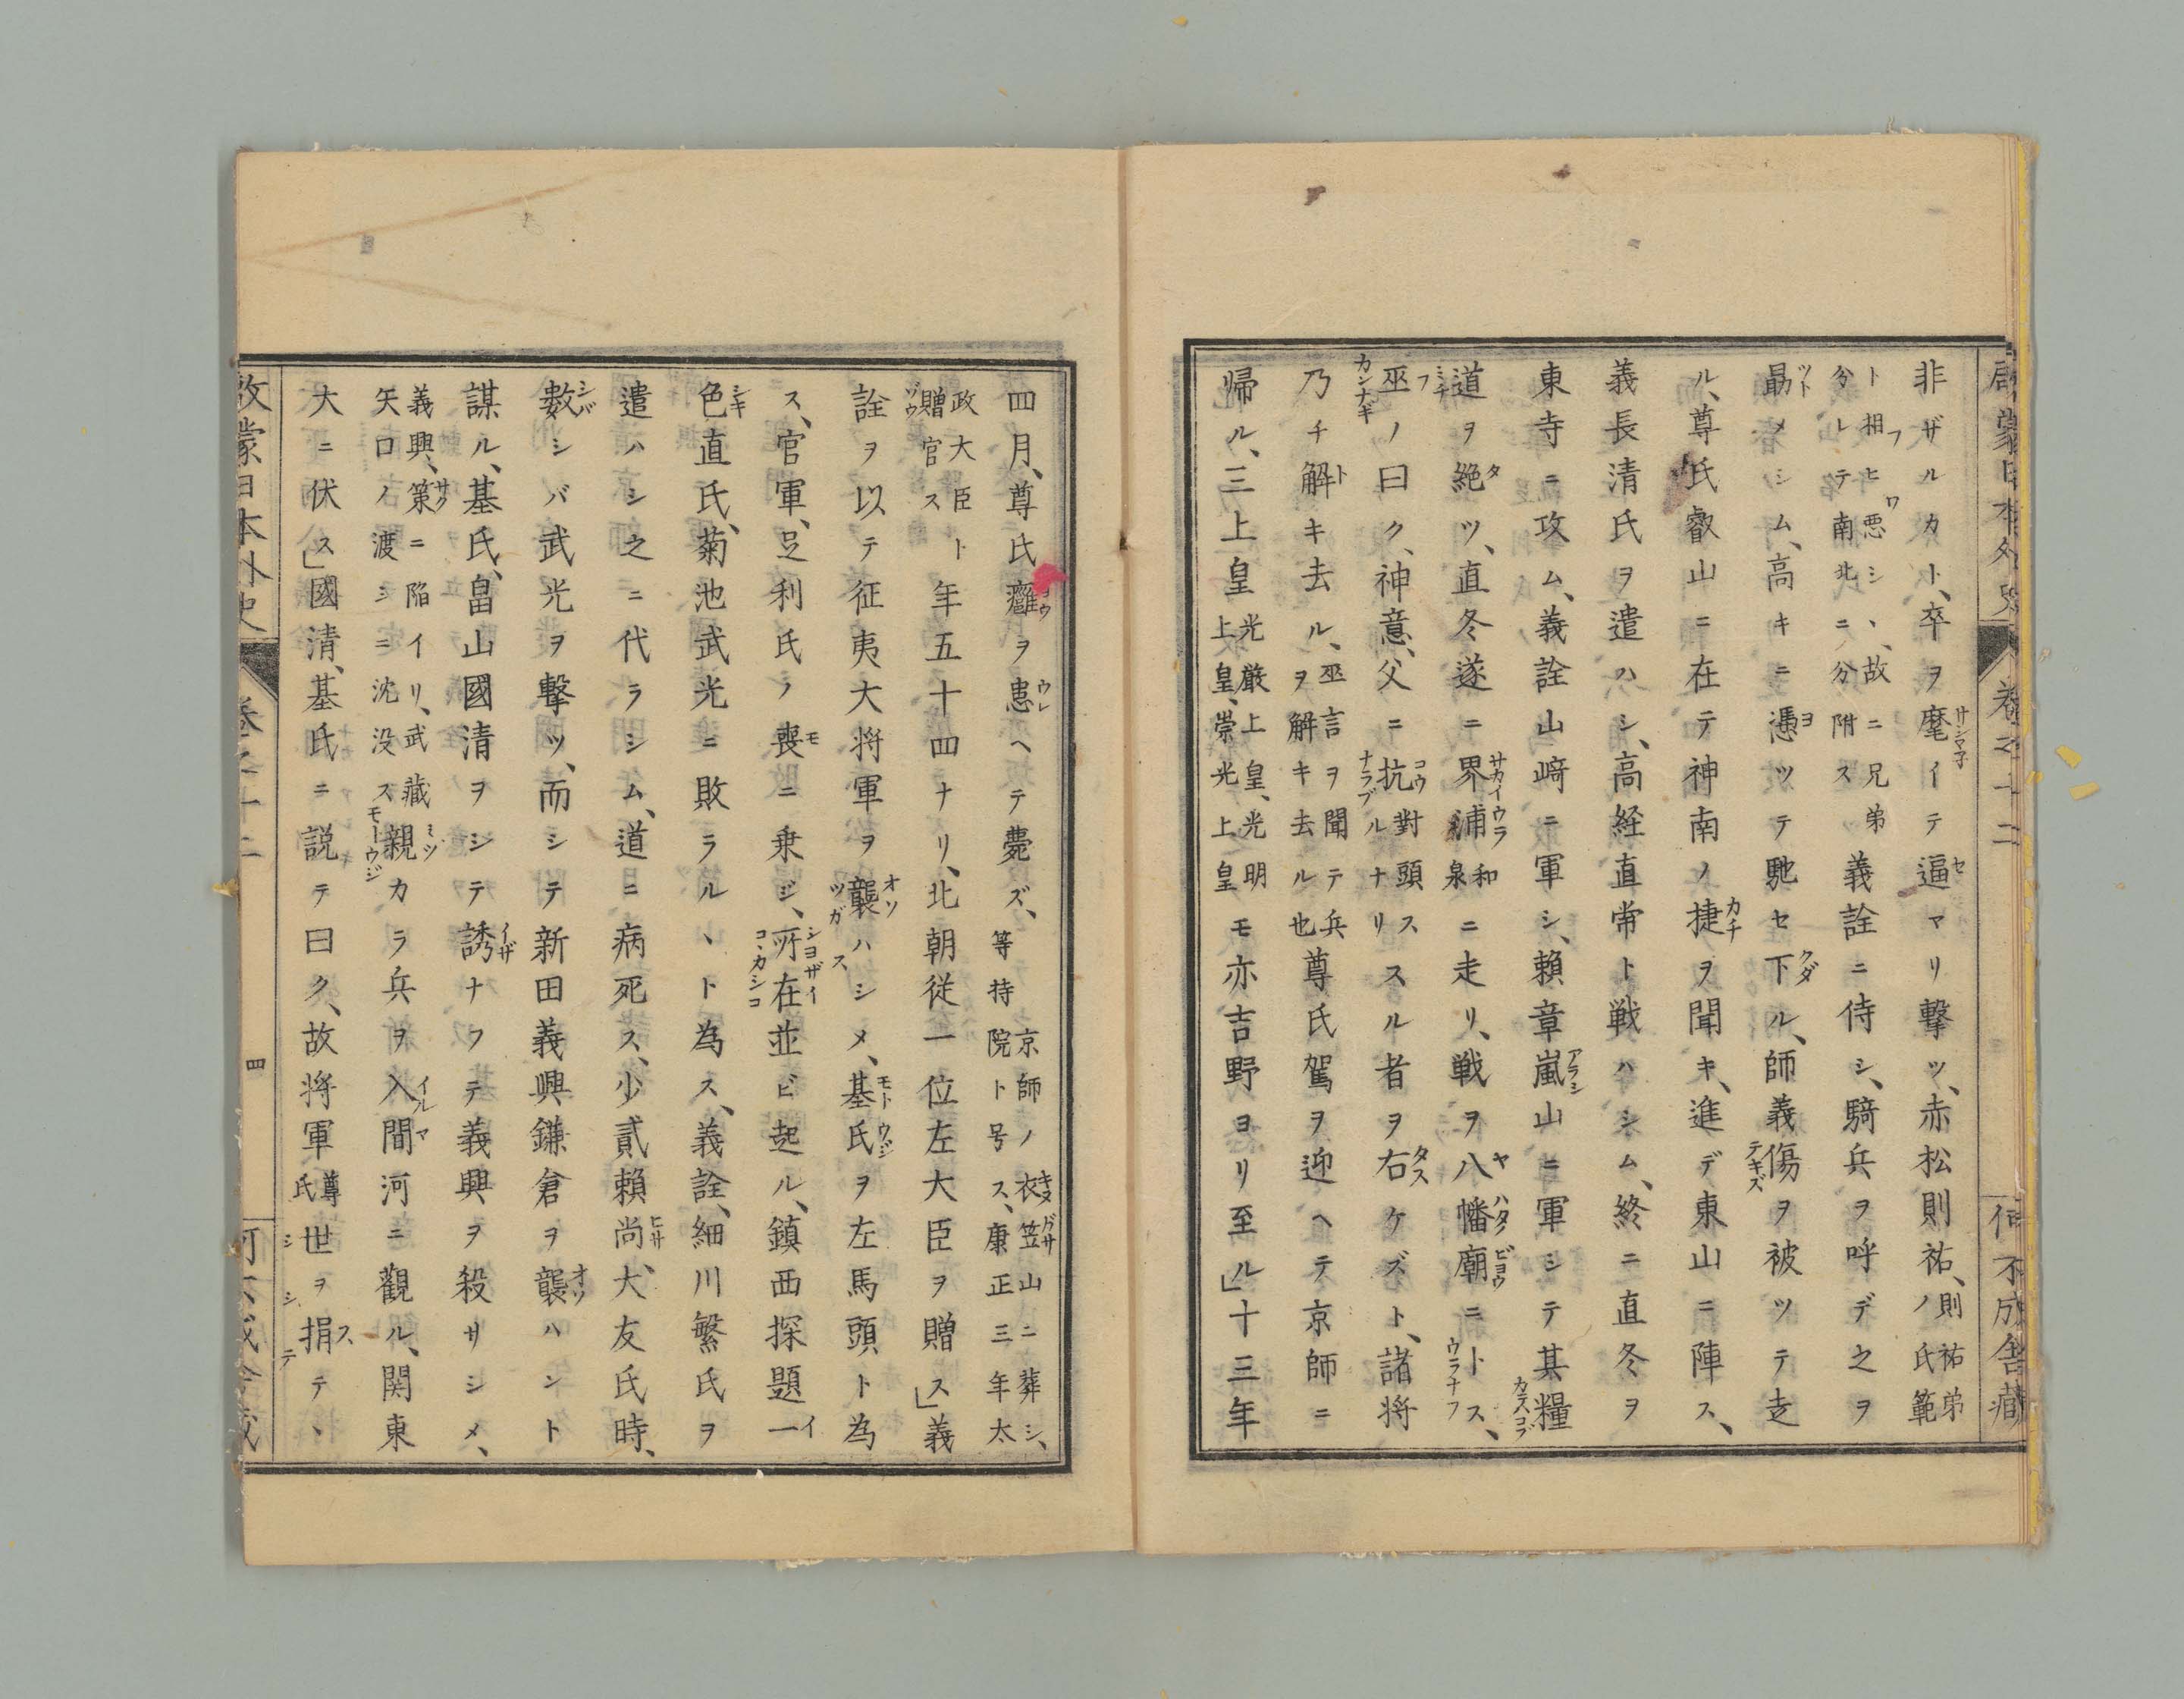 啟蒙日本外史 巻之十二 何不成舎蔵
非ザルカト、卒ヲ麾イテ逼マリ撃ツ、赤松則祐、則祐弟ノ氏範
ト相ヒ悪シ、故ニ兄弟分レテ南北ニ分附ス義詮ニ侍シ、騎兵ヲ呼デ之ヲ
勗メシム、高キニ憑ツテ馳セ下ル、師義傷ヲ被ツテ走
ル、尊氏叡山ニ在テ神南ノ捷ヲ聞キ、進デ東山ニ陣ス、
義長清氏ヲ遣ハシ、高経直常ト戦ハシム、終ニ直冬ヲ
東寺ニ攻ム、義詮山﨑ニ軍シ、頼章嵐山ニ軍シテ其糧
道ヲ絶ツ、直冬遂ニ界浦和泉ニ走リ、戦ヲ八幡廟ニトス、
巫ノ曰ク、神意、父ニ抗對頭スルナリスル者ヲ右ケズト、諸将
乃チ解キ去ル、巫言ヲ聞テ兵ヲ解キ去ル也尊氏駕ヲ迎ヘテ京師ニ
帰ル、三上皇光厳上皇、光明上皇、崇光上皇モ亦吉野ヨリ至ル」十三年
四月、尊氏癰ヲ患ヘテ薨ズ、京師ノ衣笠山ニ葬シ、等持院ト号ス、康正三年太
政大臣ト贈官ス年五十四ナリ、北朝従一位左大臣ヲ贈ス」義
詮ヲ以テ征夷大将軍ヲ襲ハシメ、基氏ヲ左馬頭ト為
ス、官軍、足利氏ノ喪ニ乗ジ、所在並ビ起ル、鎮西探題一
色直氏、菊池武光ニ敗ラル、ト為ス、義詮、細川繁氏ヲ
遣ハシ之ニ代ラシム、道ニ病死ス、少貳頼尚、大友氏時、
數シバ武光ヲ撃ツ、而シテ新田義興鎌倉ヲ襲ハント
謀ル、基氏、畠山國清ヲシテ誘ナフテ義興ヲ殺サシメ、
義興、策ニ陥イリ、武藏矢口ノ渡シニ沈没ス親カラ兵ヲ入間河ニ觀ル、関東
大ニ伏ス」國清、基氏ニ説テ曰ク、故将軍尊氏世ヲ捐テ、
啟蒙日本外史 巻之十二 四 何不成舎蔵